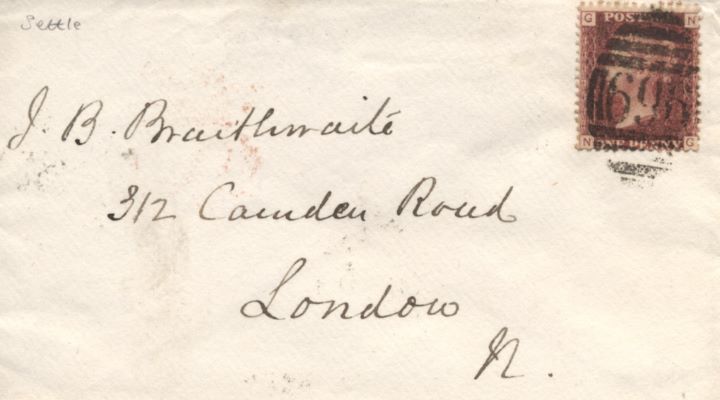 Settle
G POST N
696
N ONE PENNY G
J. B. Braithwaite
312 Camden Road
London
N.